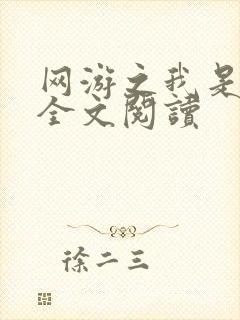 网游之我是
全文閱讀
徐二三